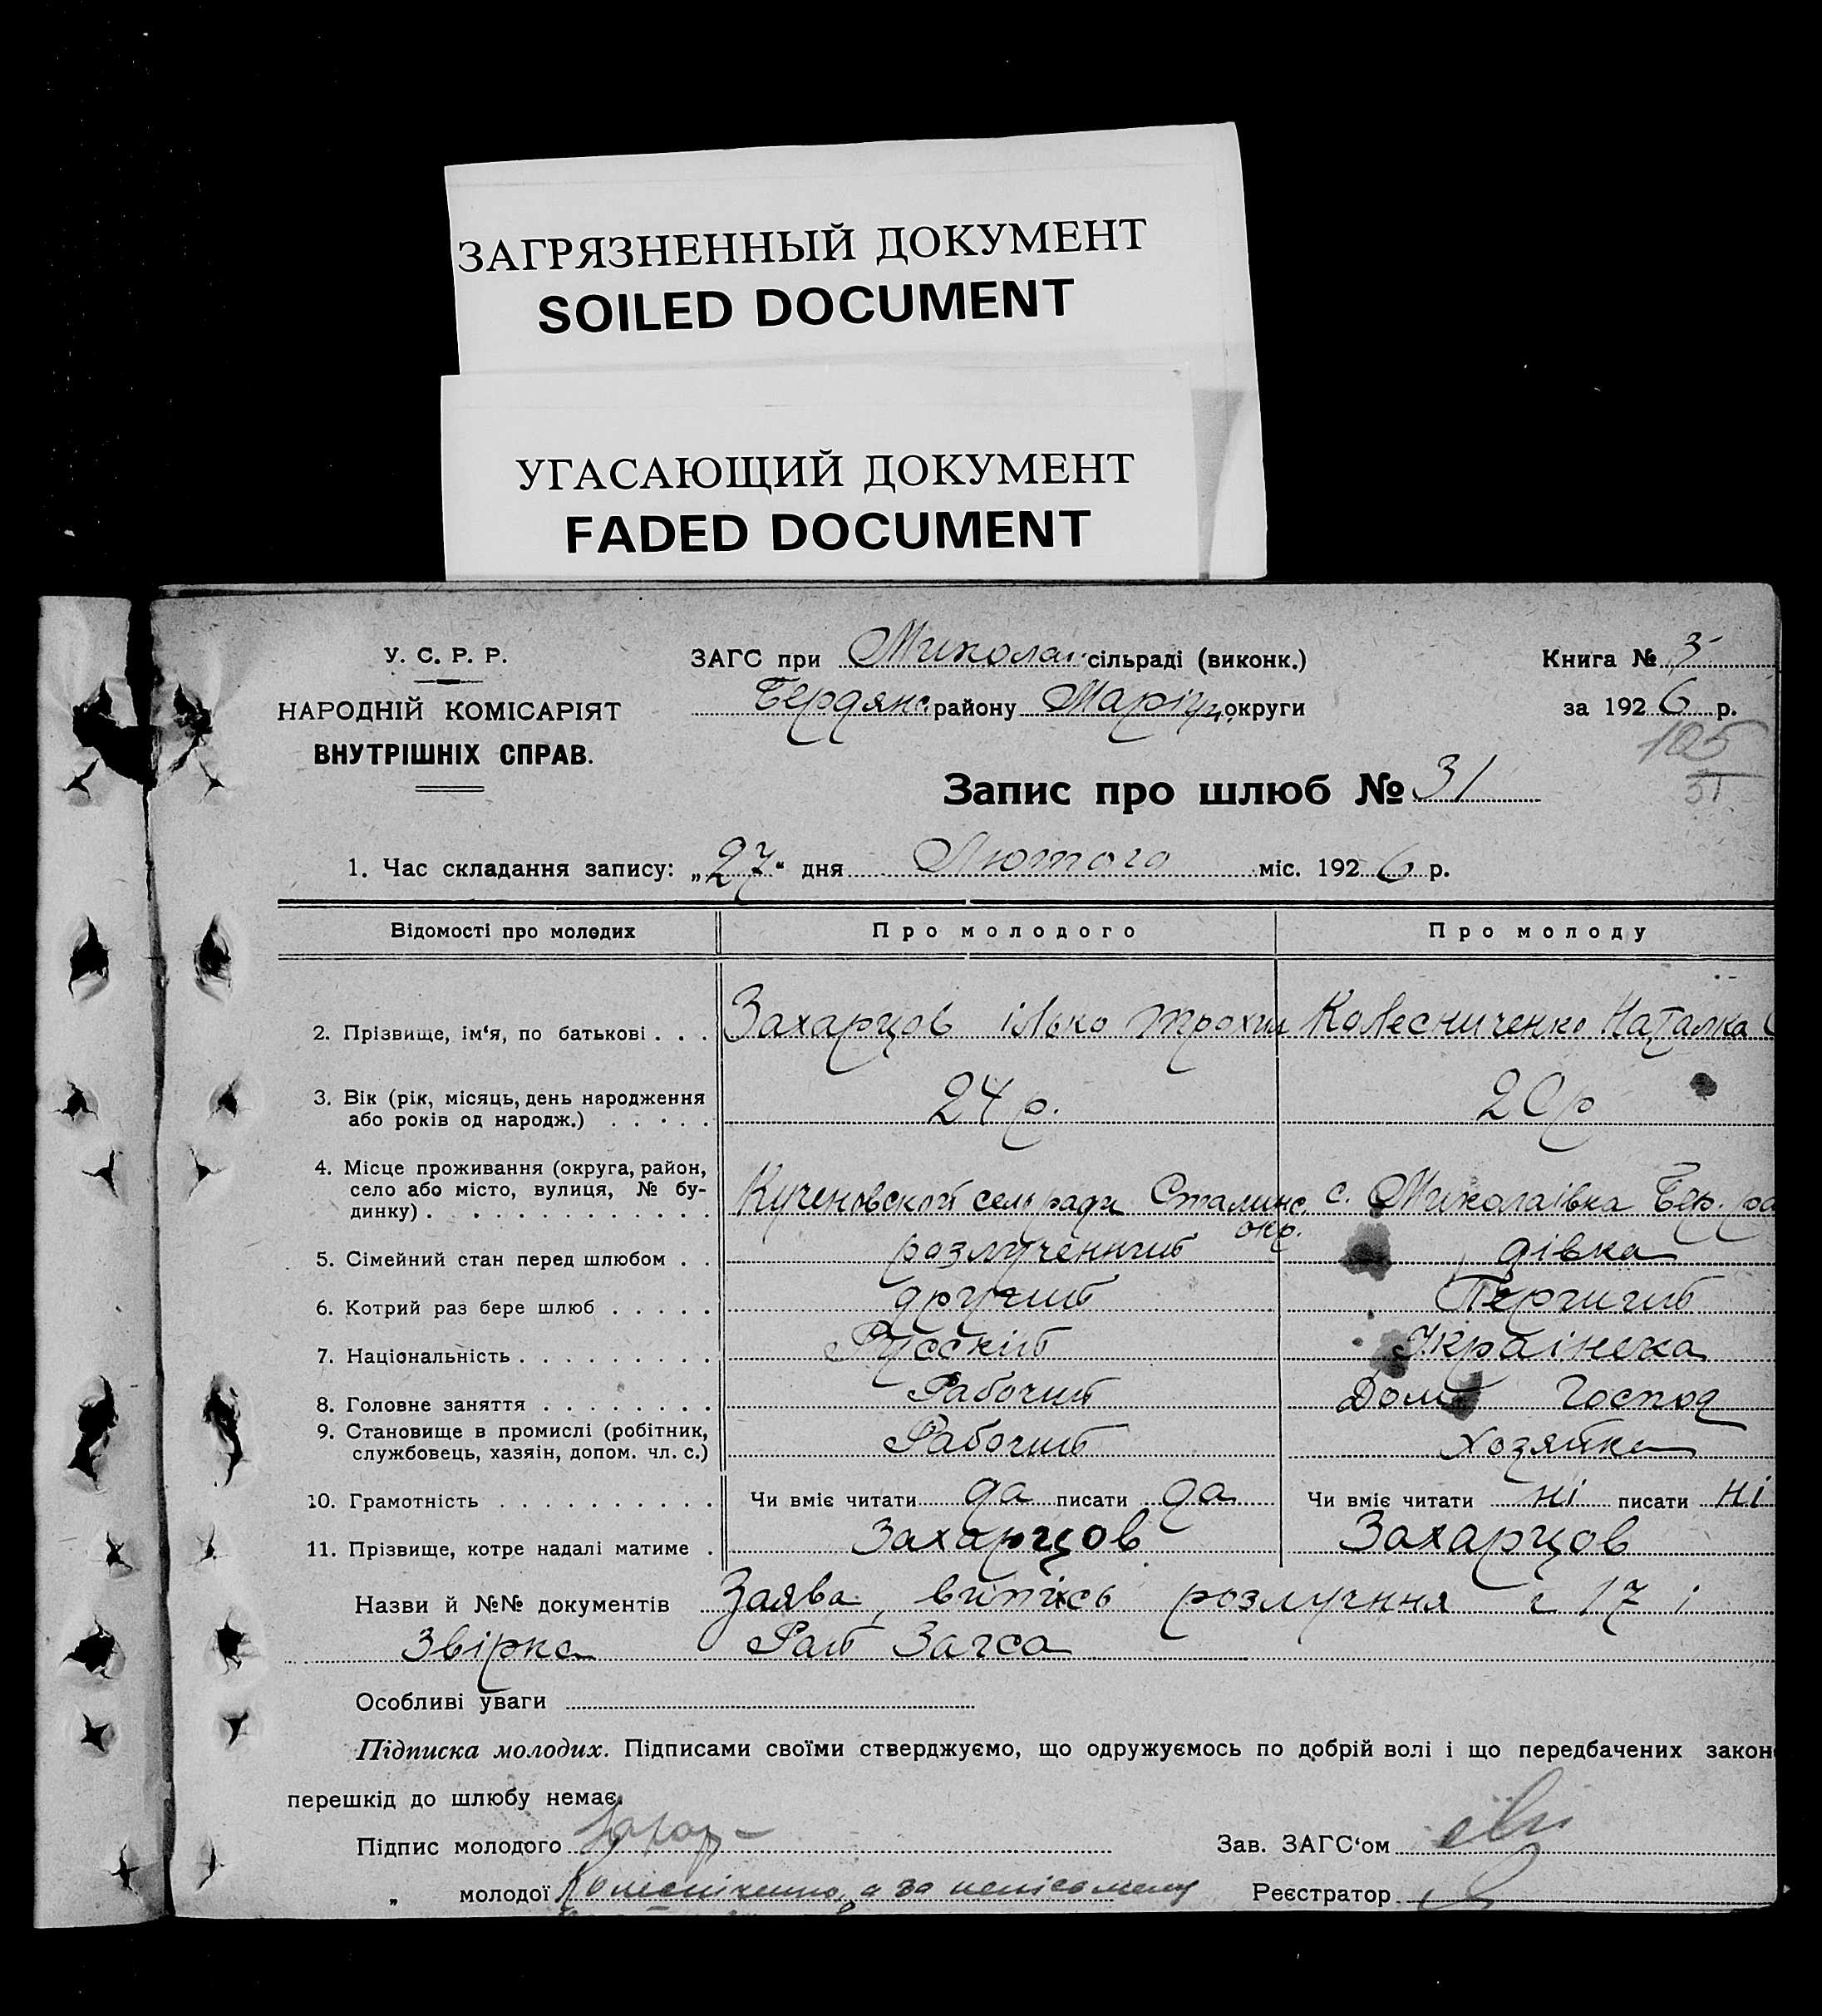 ЗАГРЯЗНЕННЫЙ ДОКУМЕНТ
SOILED DOCUMENT
УГАСАЮЩИЙ ДОКУМЕНТ
FADED DOCUMENT
У. С. Р. Р.
НАРОДНІЙ КОМІСАРІЯТ
ВНУТРІШНІХ СПРАВ.
ЗАГС при Миколаї. сільраді (виконк.)
Бердянс. району Маріуп. округи
Книга № 3
за 1926 р.
105
31
Запис про шлюб № 31
1. Час складання запису: „27“ дня Лютого міс. 1926 р.
Відомості про молодих Про молодого Про молоду
2. Прізвище, ім‘я, по батькові . . . Захарцов ілько Трохим Колесниченко Наталка
3. Вік (рік, місяць, день народження
або років од народж.) . . . . . 24 р. 20 р
4. Місце проживання (округа, район,
село або місто, вулиця, № бу-
динку) . . . . . . . . . . . . Кученовской сельради Сталинс. окр. с. Миколаівка Бер. ра
5. Сімейний стан перед шлюбом . . розлученний дівка
6. Котрий раз бере шлюб . . . . . другий Перший
7. Національність . . . . . . . . . Русскій Украінска
8. Головне заняття . . . . . . . . Рабочий Дом Господ
9. Становище в промислі (робітник,
службовець, хазяін, допом. чл. с.) Рабочий Хозяйка
10. Грамотність . . . . . . . . . . Чи вміє читати да писати да Чи вміє читати ні писати ні
11. Прізвище, котре надалі матиме . Захарцов Захарцов
Назви й №№ документів Заява, витпісь розлучння 17 і
Звірка Рай Загса
Особливі уваги
Підписка молодих. Підписами своїми стверджуємо, що одружуємось по добрій волі і що передбачених закон
перешкід до шлюбу немає.
Підпис молодого Захар Зав. ЗАГС‘ом
„ молодої Колесніченко, а за Реєстратор